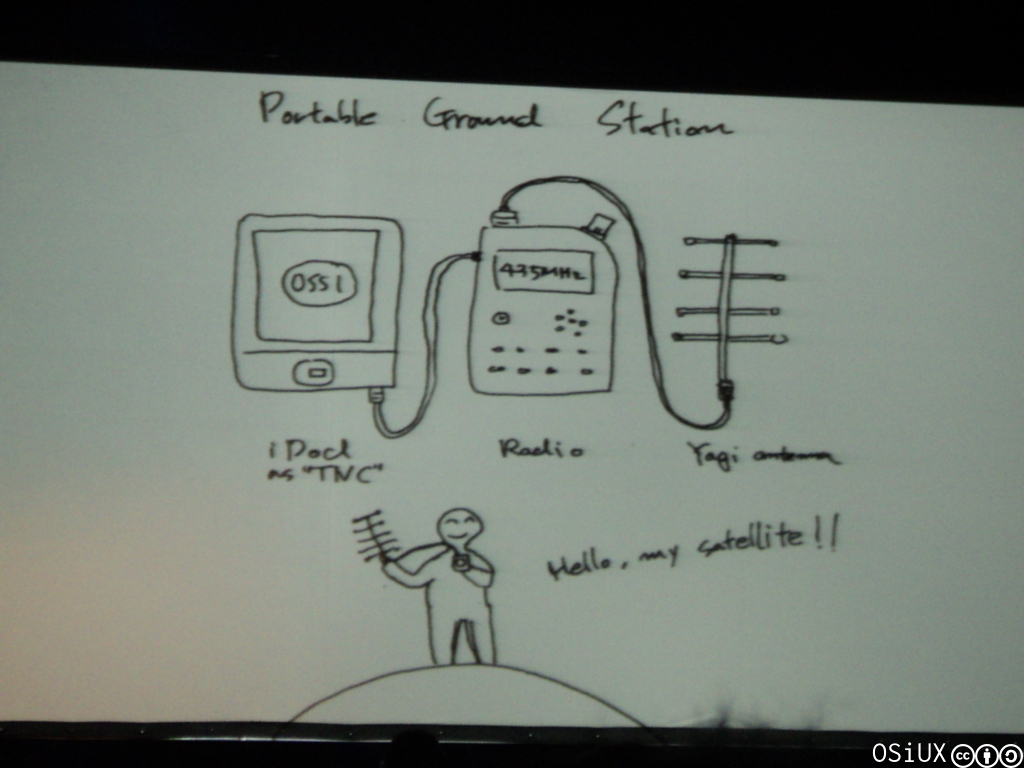 Portable Ground Station
OSSI
435MHz
iPod
as "TNC"
Radio
Yagi antenna
Hello, my satellite!!
OSiUX